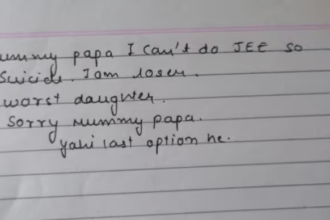 ummy papa I can't do JEE so
suicide. I am loser.
worst daughter.
Sorry mummy papa.
yahi last option he.